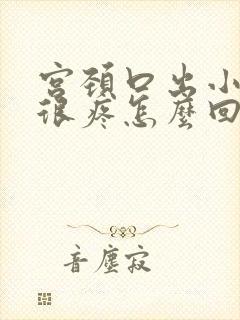 宫颈口出小
很疼怎麼回
音塵寂